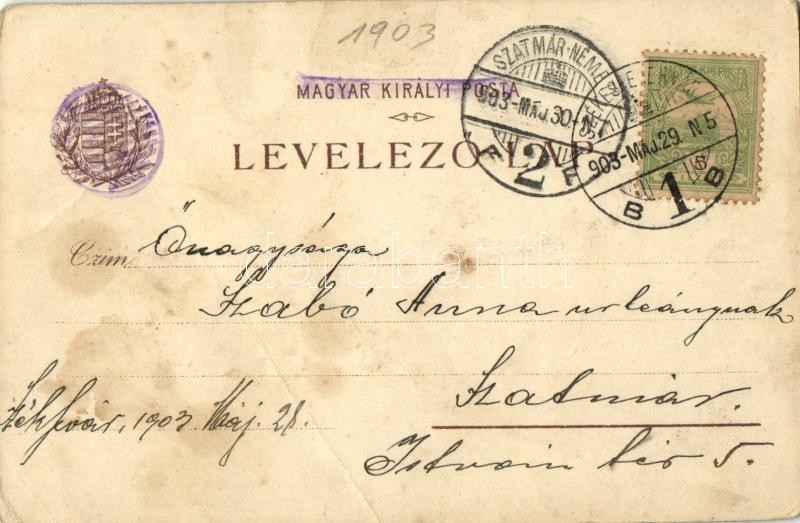 1903
MAGYAR KIRÁLYI POSTA
LEVELEZŐ-LAP
SZATMÁR-NÉMETI
903-MÁJ.30-
F 2 F
903-MÁJ.29. N5
B 1 B
darabanth
Czim Őnagysága
Szabó Anna urleánynak
Szatmár.
Székfvár, 1903 Máj. 28.
István tér 5.